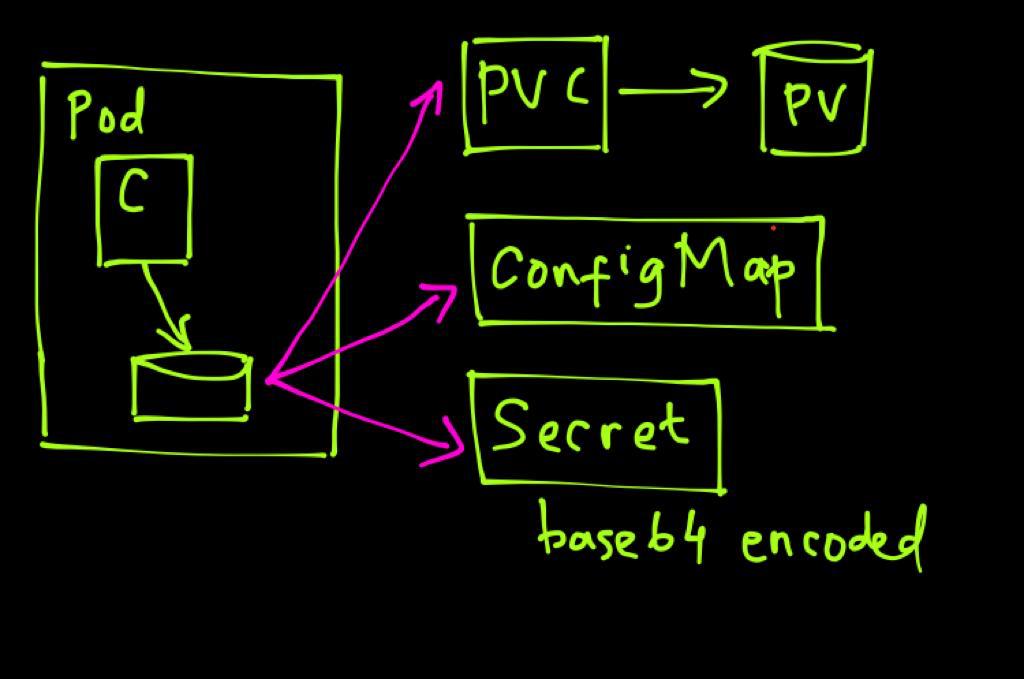 Pod
C
PVC
PV
ConfigMap
Secret
base64 encoded